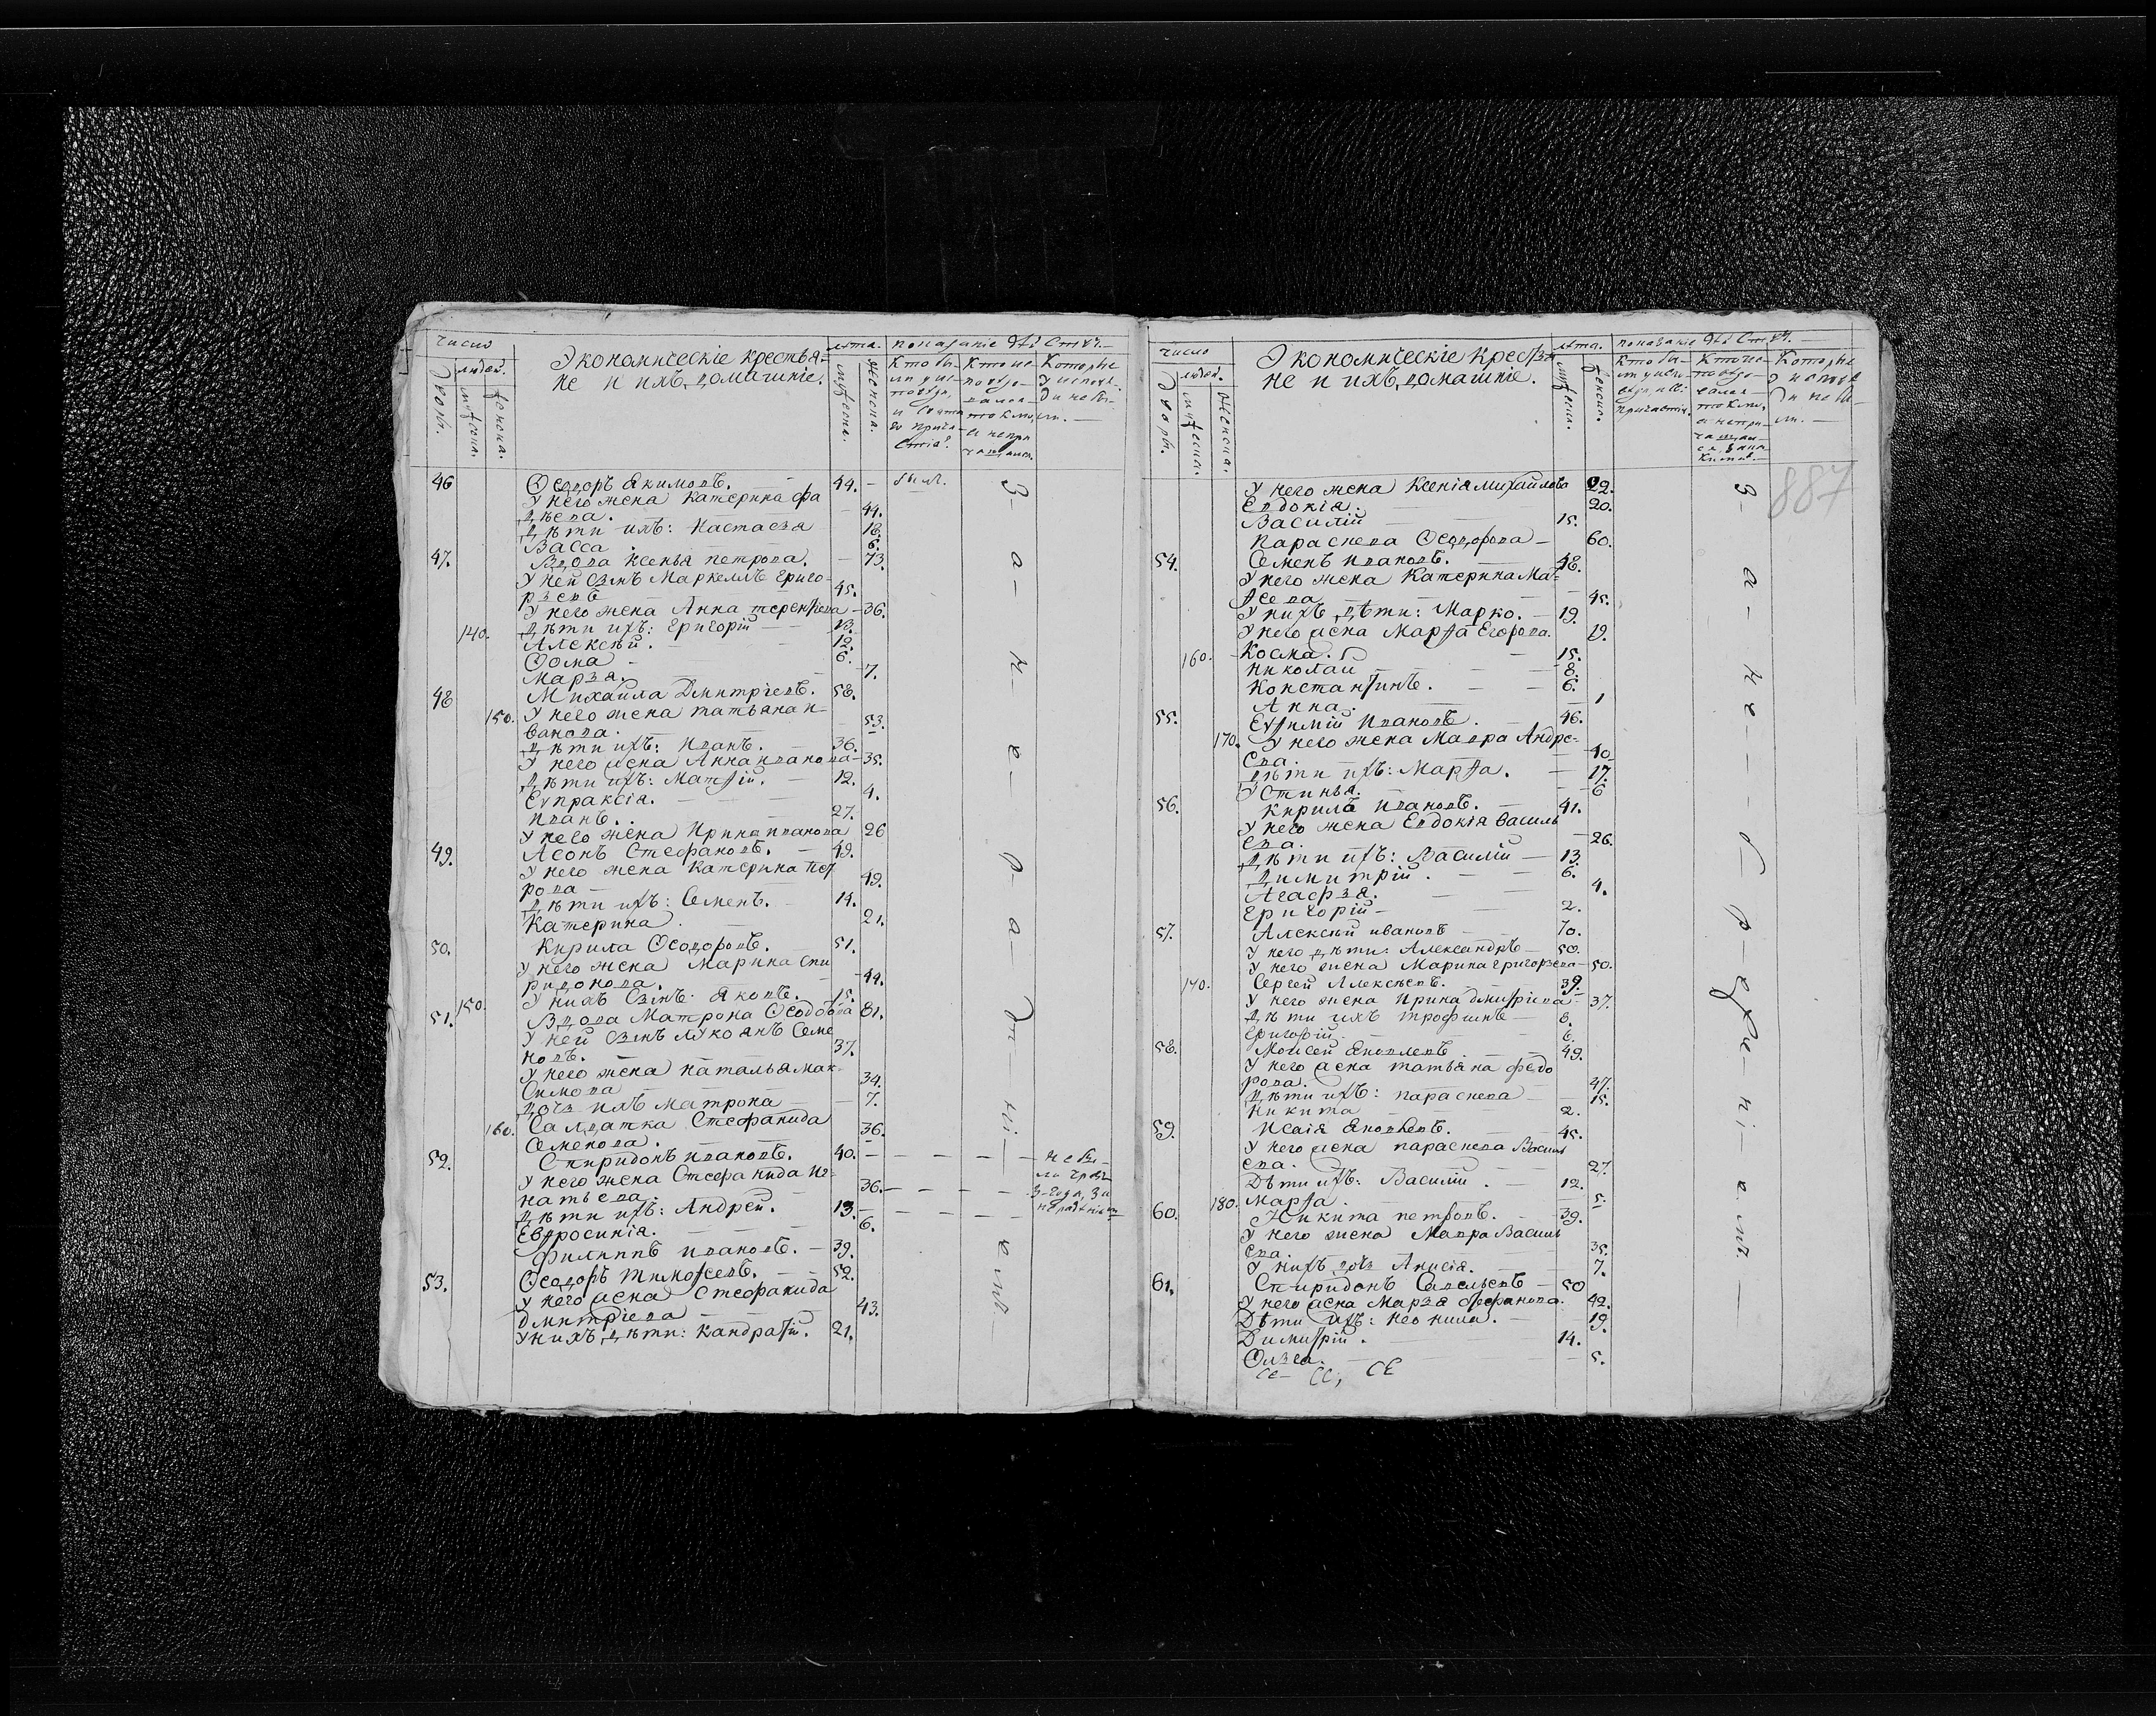 число
людей.
Дворы.
мужеска.
женска.
Экономическіе крестья-
не и ихъ домашніе.
лѣта.
мужеска.
женска.
показаніе
Кто бы-
Кто не
Которые
46 Ѳеодоръ Якимовъ. — 44. — былъ.
У него жена Катерина Фа
дѣева. — 44.
Дѣти ихъ: Настасья 18.
Васса 6.
47. Вдова Ксенья Петрова. — 73.
У ней сынъ Маркеллъ Григо-
рьевъ — 45.
У него жена Анна Терентіева — 36.
140. Дѣти ихъ: Григорій — 13.
Алексѣй. — 12.
Ѳома — 6.
Марья. — 7.
48 Михайла Дмитріевъ. 58.
150. У него жена Татьяна И-
ванова. — 53.
Дѣти ихъ: Иванъ. — 36.
У него жена Анна Иванова — 35.
Дѣти ихъ: Матѳій. — 12.
Еупраксія. — 4.
Иванъ. — 27.
У него жена Ирина Иванова 26
49. Леонъ Стефановъ. — 49.
У него жена Катерина Пет
рова — 49.
Дѣти ихъ: Семенъ. — 14.
Катерина. — 21.
50. Кирила Ѳеодоровъ. — 51.
У него жена Марина Спи
ридонова. — 44.
150. У нихъ сынъ Яковъ. 15.
51. Вдова Матрона Ѳеодоова 81.
У ней сынъ Лукоянъ Семе
новъ. — 37.
У него жена Наталья Мак-
симова — 34.
Дочь ихъ Матрона — 7.
160. Салдатка Стефанида
Семенова. — 36.
52. Спиридонъ Ивановъ. 40. — — — — не бы-
У него жена Стефанида Иг-
натьева. 36. — — — — 3 года, за
Дѣти ихъ: Андрей. 13. — — — — нерадѣніем
Евфросинія. — 6.
Филиппъ Ивановъ. — 39.
53. Ѳеодоръ Тимоѳеевъ. 52.
У него жена Стефанида
Дмитріева — 43.
У нихъ дѣти: Кандратій. 21.
за нерадѣніемъ
число
людей.
Дворы.
мужеска.
женска.
Экономическіе Крестья
не и ихъ домашніе.
лѣта.
мужеска.
женска.
показаніе
Кто бы-
Которые
887
У него жена Ксенія Михайлова 2.
Евдокія. — 20.
Василій — 15.
Параскева Ѳеодорова — 60.
54. Семенъ Ивановъ. — 48.
У него жена Катерина Ма-
ѳеева — 45.
У нихъ дѣти: Марко. — 19.
У него жена Марѳа Егорова. 19.
160. Косма. — 15.
Николай — 8.
Константинъ. — 6.
Анна. — 1
55. Еуѳимій Ивановъ. 46.
170. У него жена Мавра Андре-
ева. — 40
Дѣти ихъ: Марѳа. — 17.
Устинья. — 6
56. Кирилъ Ивановъ. — 41.
У него жена Евдокія Василь
ева. — 26.
Дѣти ихъ: Василій — 13.
Димитрій. — 6.
Агафья. — 4.
Григорій — 2.
57. Алексѣй Ивановъ — 70.
У него дѣти: Александръ — 50.
У него жена Марина Григорьева — 50.
170. Сергей Алексѣевъ. — 39.
У него жена Ирина Дмитріева — 37.
Дѣти ихъ Трофимъ — 8.
Григорій. — 6.
58. Моисей Яковлевъ — 49.
У него жена Татьяна Федо
рова. — 47.
Дѣти ихъ: Параскева — 15.
Никита — 2.
59. Исаія Яковлевъ. — 45.
У него жена Параскева Василь
ева. — 27.
Дѣти ихъ: Василій. — 12.
180. Марѳа. — 5.
60. Никита Петровъ. — 39.
У него жена Мавра Василь
ева. — 35.
У нихъ дочь Анисія. — 7.
61. Спиридонъ Савельевъ — 50
У него жена Марья Стефанова. 42.
Дѣти ихъ: Неонила. — 19.
Димитрій. — 14.
Ольга. — 5.
за небреженіемъ